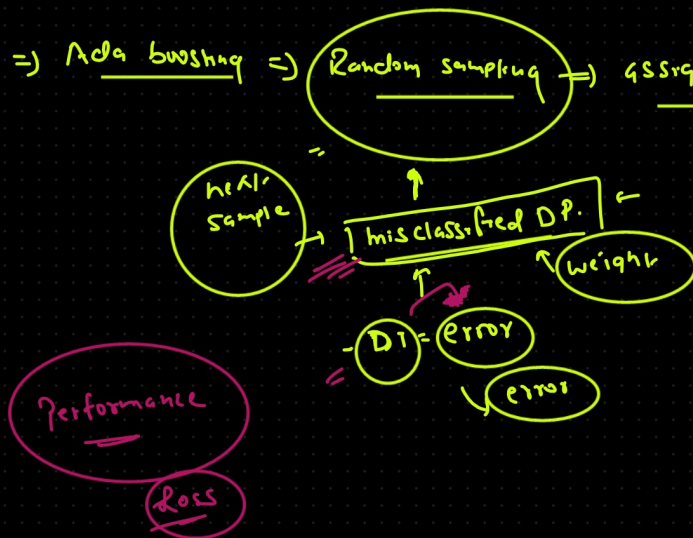 =) Ada boosting =) Random sampling =) assig
=
next
sample → misclassified DP. ←
weight
- DT = error
= error
Performance
Loss